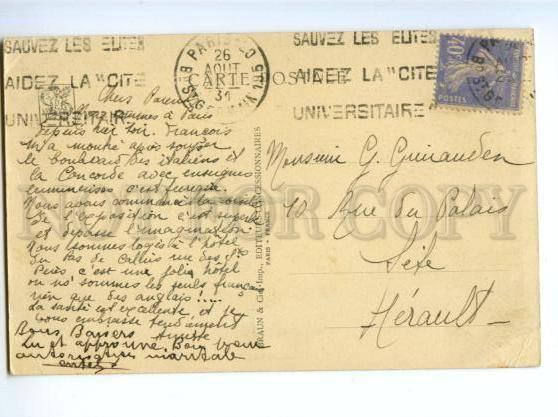 SAUVEZ LES ELITES
AIDEZ LA "CITE
UNIVERSITAIRE
PARIS
26
AOUT
31
SAUVEZ LES ELITES
AIDEZ LA "CITE
UNIVERSITAIRE
40c
POSTES
CARTE POSTALE
Chers Parents
Nous sommes à Paris
depuis hier soir. François
m'a montré après souper
le boulevard des italiens et
la Concorde avec enseignes
lumineuses c'est
Nous avons commencé la visite
de l'exposition c'est superbe
et dépasse l'imagination
Nous sommes logés à l'hôtel
du Pas de Calais rue des Sts
Pères c'est une jolie hôtel
ou ns sommes les seuls français
rien que des anglais.....
La santé est excellente et je
vous embrasse tendrement
Bons Baisers
Lu et approuvé Bon pour
autorisation maritale
BRAUN & Cie Imp., EDITEURS CONCESSIONNAIRES
PARIS - FRANCE
Monsieur G.
10 Rue du Palais
Sète
Hérault